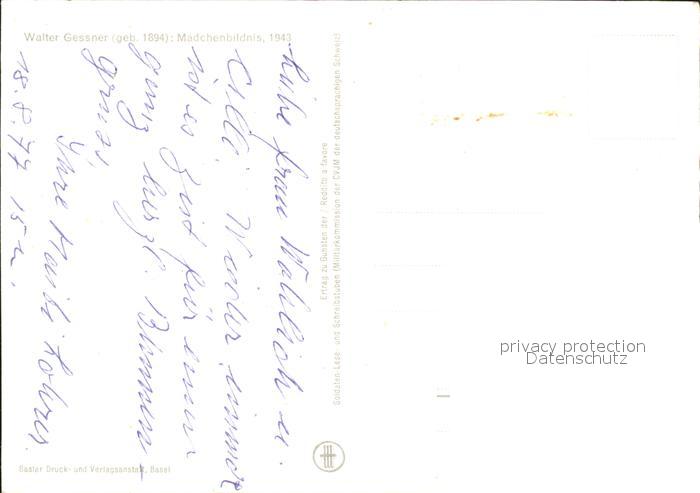 Walter Gessner (geb. 1894): Mädchenbildnis, 1943
Liebe Frau Wahlich u.
Cilli. Wieder einmal
ist es Zeit für einen
ganz herzl. Blumen-
gruss,
Ihre Maidi
18. 8. 77 15 u.
Ertrag zu Gunsten der / Reddito a favore
Soldaten-Lese- und Schreibstuben (Militärkommission der CVJM der deutschsprachigen Schweiz)
Basler Druck- und Verlagsanstalt, Basel
privacy protection
Datenschutz